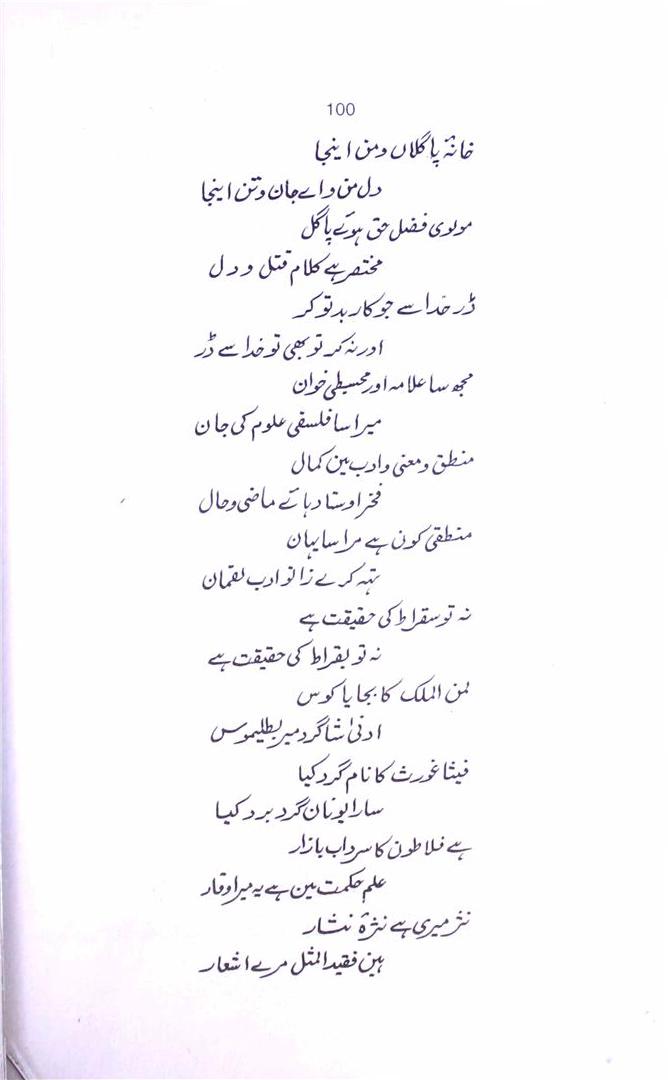 100
خانۂ پاگلاں و من اینجا
دل من واے جان و تن اینجا
مولوی فضل حق ہوئے پاگل
مختصر ہے کلام قتل و دل
ڈر خدا سے جو کار بد تو کر
اور نہ کر تو بھی تو خدا سے ڈر
مجھ سا علامہ اور محسیطی خوان
میرا سا فلسفی علوم کی جان
منطق و معنی و ادب مین کمال
فخر اوستادہائے ماضی و حال
منطقی کون ہے مرا سا یہان
تہہ کرے زانو ادب لقمان
نہ تو سقراط کی حقیقت ہے
نہ تو بقراط کی حقیقت ہے
لمن الملک کا بجایا کوس
ادنیٰ شاگرد میر بطلیموس
فیثاغورث کا نام گرد کیا
سارا یونان گرد برد کیا
ہے فلاطون کا سرداب بازار
علم حکمت مین ہے یہ میرا وقار
نثر میری ہے نثرۂ نثار
ہین فقید المثل مرے اشعار